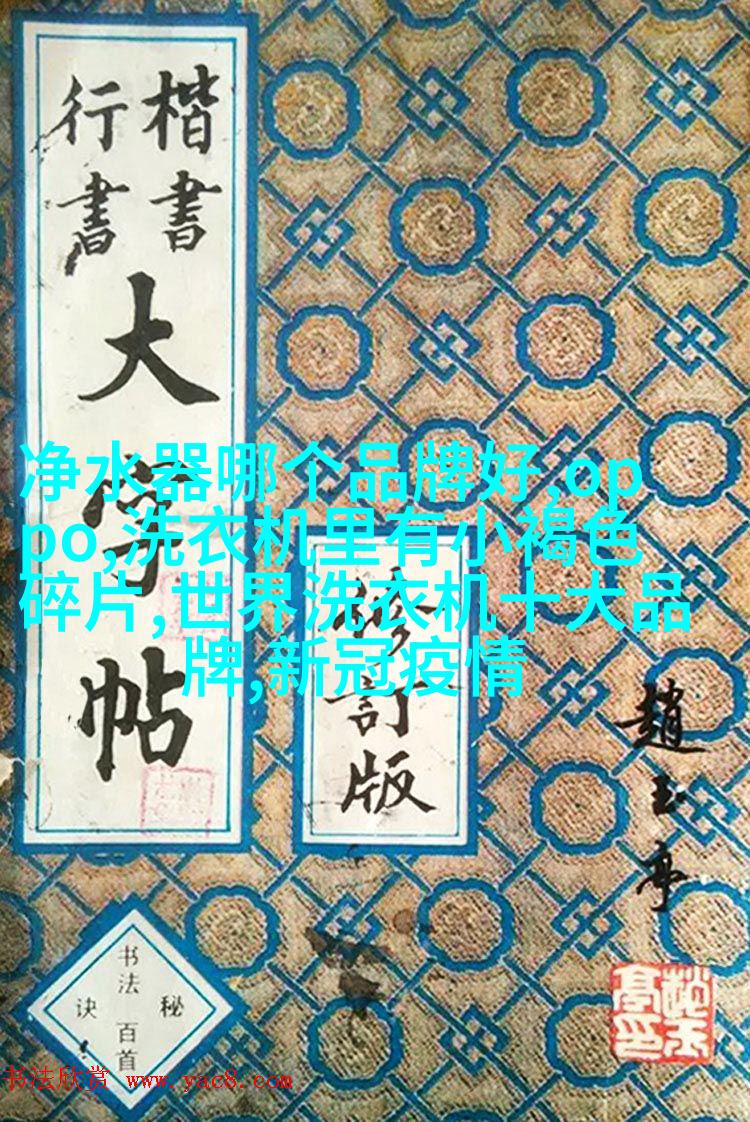 楷書
行書
大字帖
净水器哪个品牌好,op
po,洗衣机里有小褐色
碎片,世界洗衣机十大品
牌,新冠疫情
修訂版
趙玉亭
书法百首
秘诀
书法欣赏 www.yac8.com